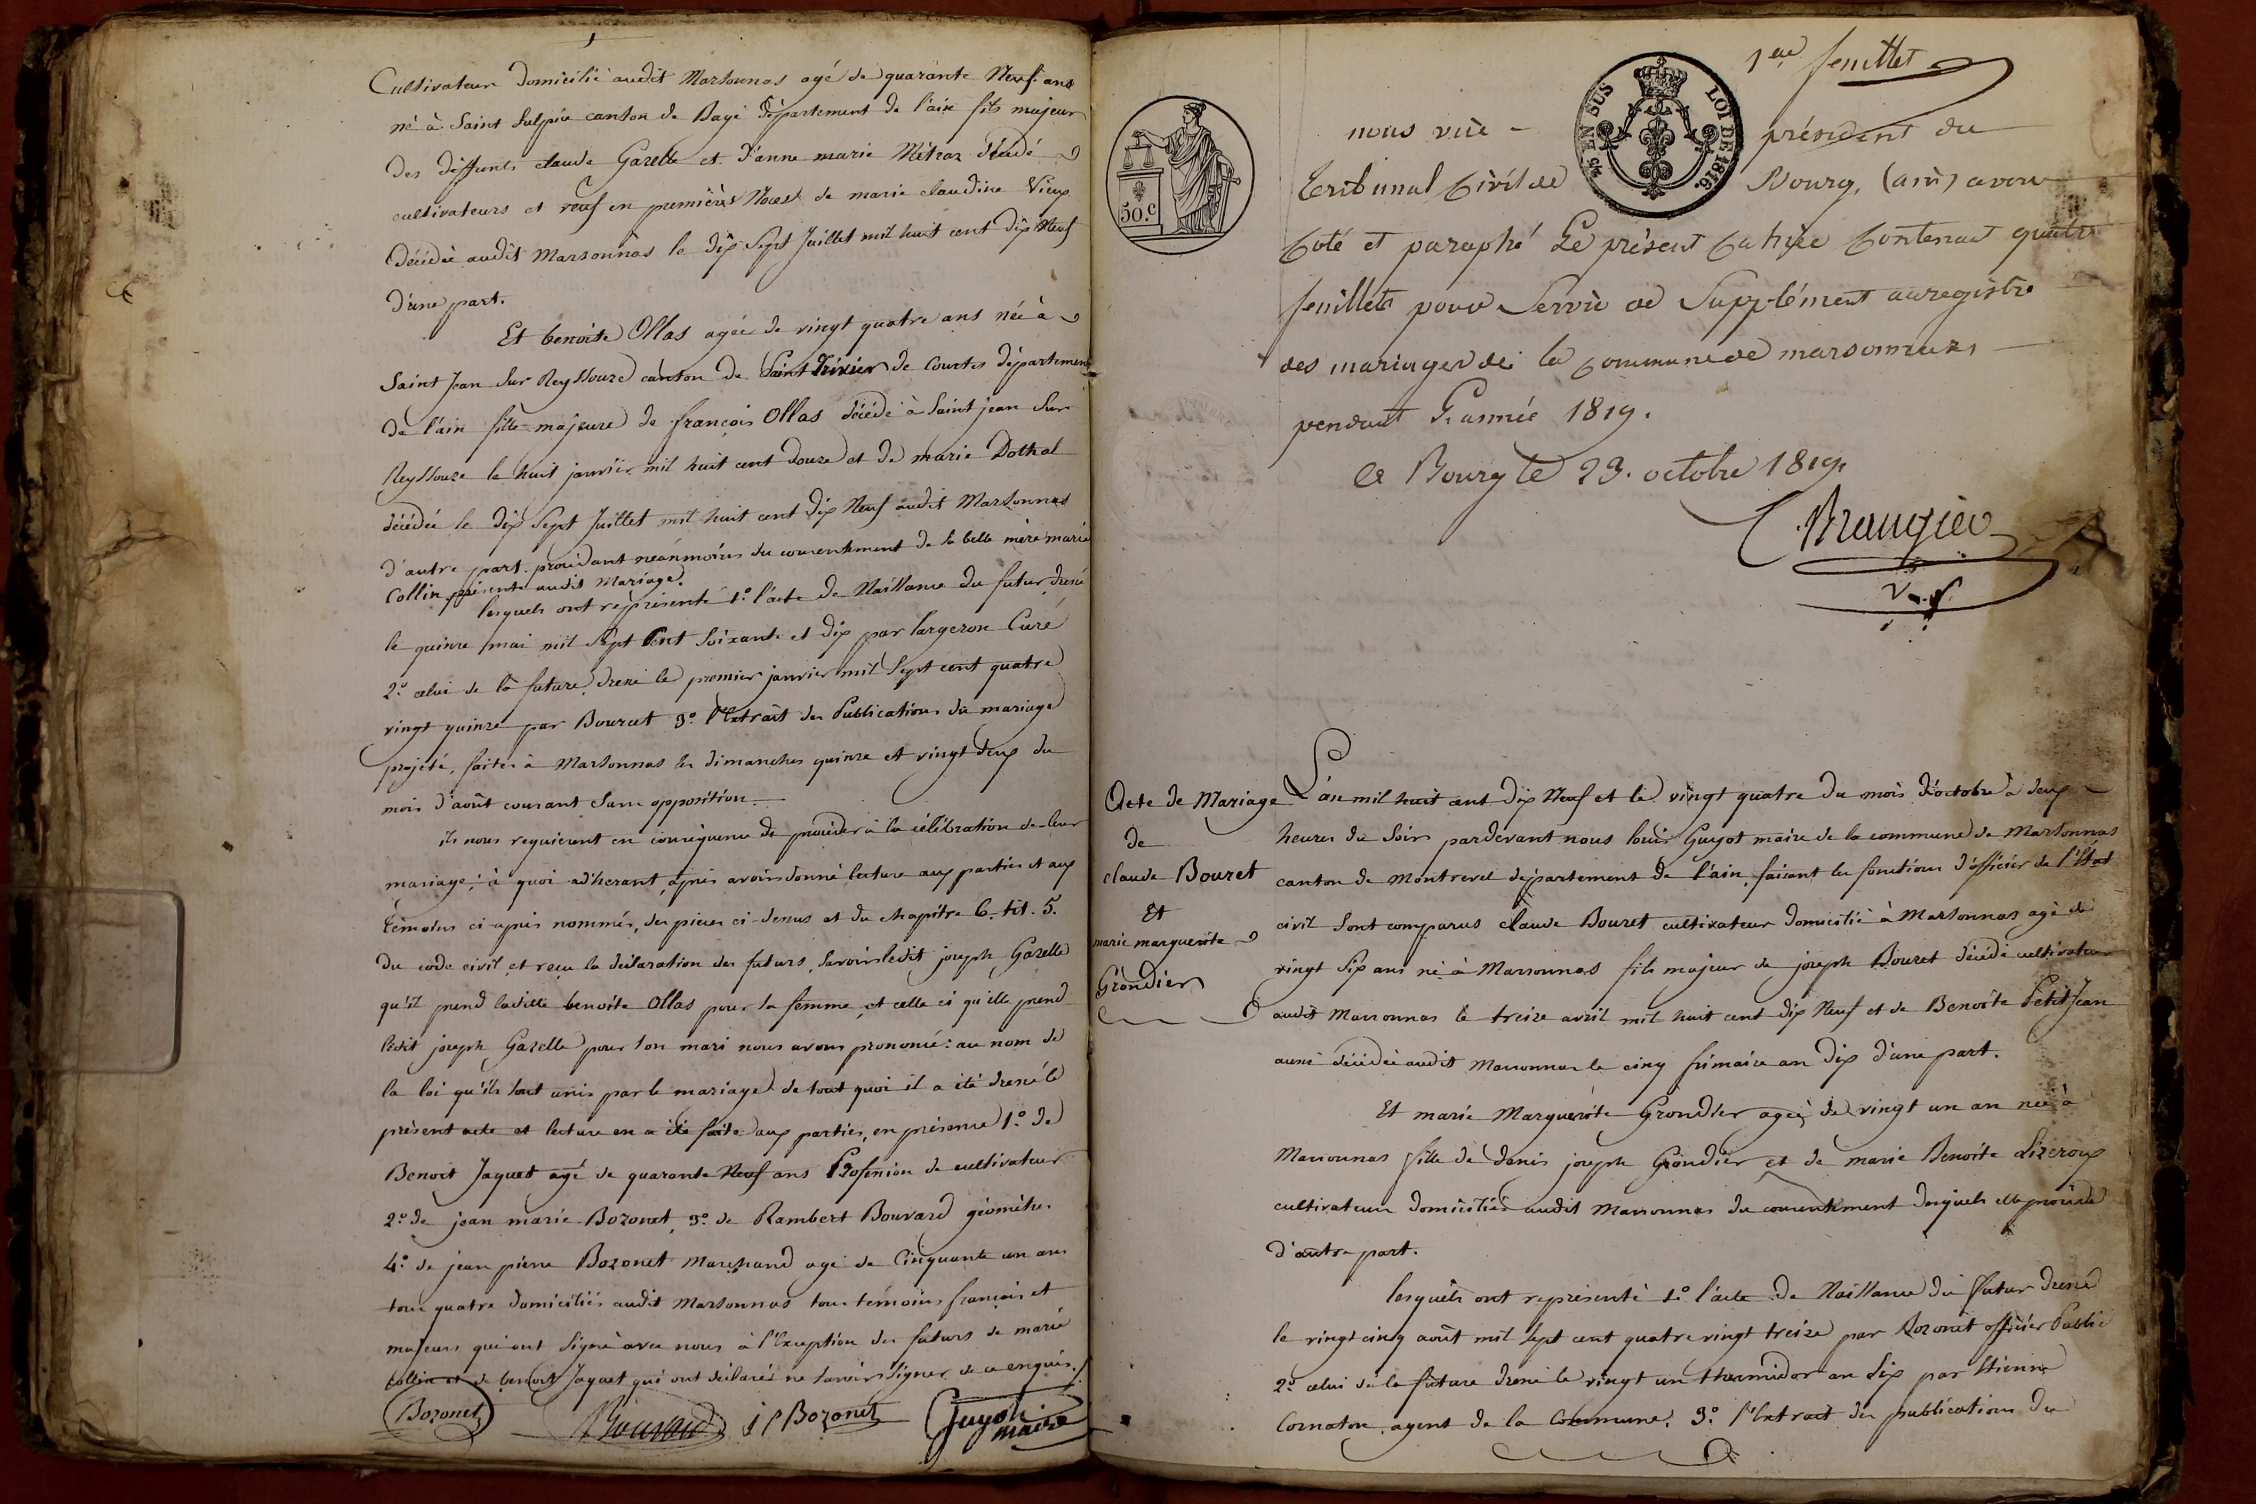 Cultivateur domicilié audit Marsonnas agé de quarante Neuf ans
né à Saint Sulpice canton de Bagé département de l'ain fils majeur
des deffunts claude Gazelle et d'anne marie Métraz décédé
cultivateurs et veuf en premières Noces de marie claudine Vieux
décédée audit Marsonnas le dix Sept Juillet mil huit cent dix Neuf
d'une part.
Et benoite Ollas agée de vingt quatre ans née à
Saint Jean Sur Reyssouze canton de Saint Trivier de Courtes département
de l'ain fille majeure de françois Ollas décédé à Saint jean Sur
Reyssouze le huit janvier mil huit cent douze et de marie Dothal
décédée le dix Sept Juillet mil huit cent dix Neuf audit Marsonnas
d'autre part. procédant néanmoins du consentement de la belle mère marie
Collin présente audit Mariage.
lesquels ont représenté 1.º l'acte de Naissance du futur dressé
le quinze mai mil Sept Cent Soixante et dix par largeron Curé
2.º celui de la future dressé le premier janvier mil Sept cent quatre
vingt quinze par Bourcet 3.º l'Extrait des Publications du mariage
projeté, faites à Marsonnas les dimanches quinze et vingt deux du
mois d'août courant Sans opposition.
ils nous requierent en conséquence de procéder à la célébration de leur
mariage; à quoi adherant, après avoir donné lecture aux parties et aux
témoins ci-après nommés, des pieces ci-dessus et du chapitre 6. tit. 5.
du code civil et reçu la déclaration des futurs, Savoir ledit joseph Gazelle
qu'il prend ladite benoite Ollas pour sa femme, et celle ci qu'elle prend
ledit joseph Gazelle pour son mari nous avons prononcé: au nom de
la loi qu'ils sont unis par le mariage de tout quoi il a été dressé le
présent acte et lecture en a été faite aux parties, en présence 1.º de
Benoit Jaquet agé de quarante Neuf ans Profession de cultivateur
2.º de jean marie Bozonet, 3.º de Rambert Bouvard géomètre.
4.º de jean pierre Bozonet Marchand agé de Cinquante un ans
tous quatre domiciliés audit Marsonnas tous témoins français et
majeurs qui ont Signé avec nous à l'Exception des futurs de marie
collin et de benoit Jaquet qui ont déclarés ne Savoir Signer de ce enquis.
Bozonet Bouvard J P Bozonet Guyot maire
1er feuillet
50.c
EN SUS LOI DE 1816.
nous vice - président du
tribunal Civil de Bourg, (ain) avons
Coté et paraphé Le présent Cahier Contenant quatre
feuillets pour Servir de Supplément au registre
des mariages de la Commune de marsonnas
pendant L'année 1819.
a Bourg le 23. octobre 1819.
Brangier
Acte de Mariage
de
claude Bouret
Et
marie marguerite
Grondier
L'an mil huit cent dix Neuf et le vingt quatre du mois d'octobre à deux
heures du Soir pardevant nous louis Guyot maire de la commune de Marsonnas
canton de Montrevel département de l'ain, faisant les fonctions d'officier de l'État
civil Sont comparus claude Bouret cultivateur domicilié à Marsonnas agé de
vingt Six ans né à Marsonnas fils majeur de joseph Bouret décédé cultivateur
audit Marsonnas le treize avril mil huit cent dix Neuf et de Benoite Petit Jean
aussi décédée audit Marsonnas le cinq frimaire an dix d'une part.
Et marie Marguerite Grondier agée de vingt un an née à
Marsonnas fille de denis joseph Grondier et de marie Benoite Lizeroux
cultivateurs domiciliés audit Marsonnas du consentement desquels elle procède
d'autre part.
lesquels ont représenté 1.º l'acte de Naissance du futur dressé
le vingt cinq août mil Sept cent quatre vingt treize par Bozonet officier Public
2.º celui de la future dressé le vingt un thermidor an Six par Etienne
Cornaton, agent de la Commune. 3.º l'Extrait des publications du